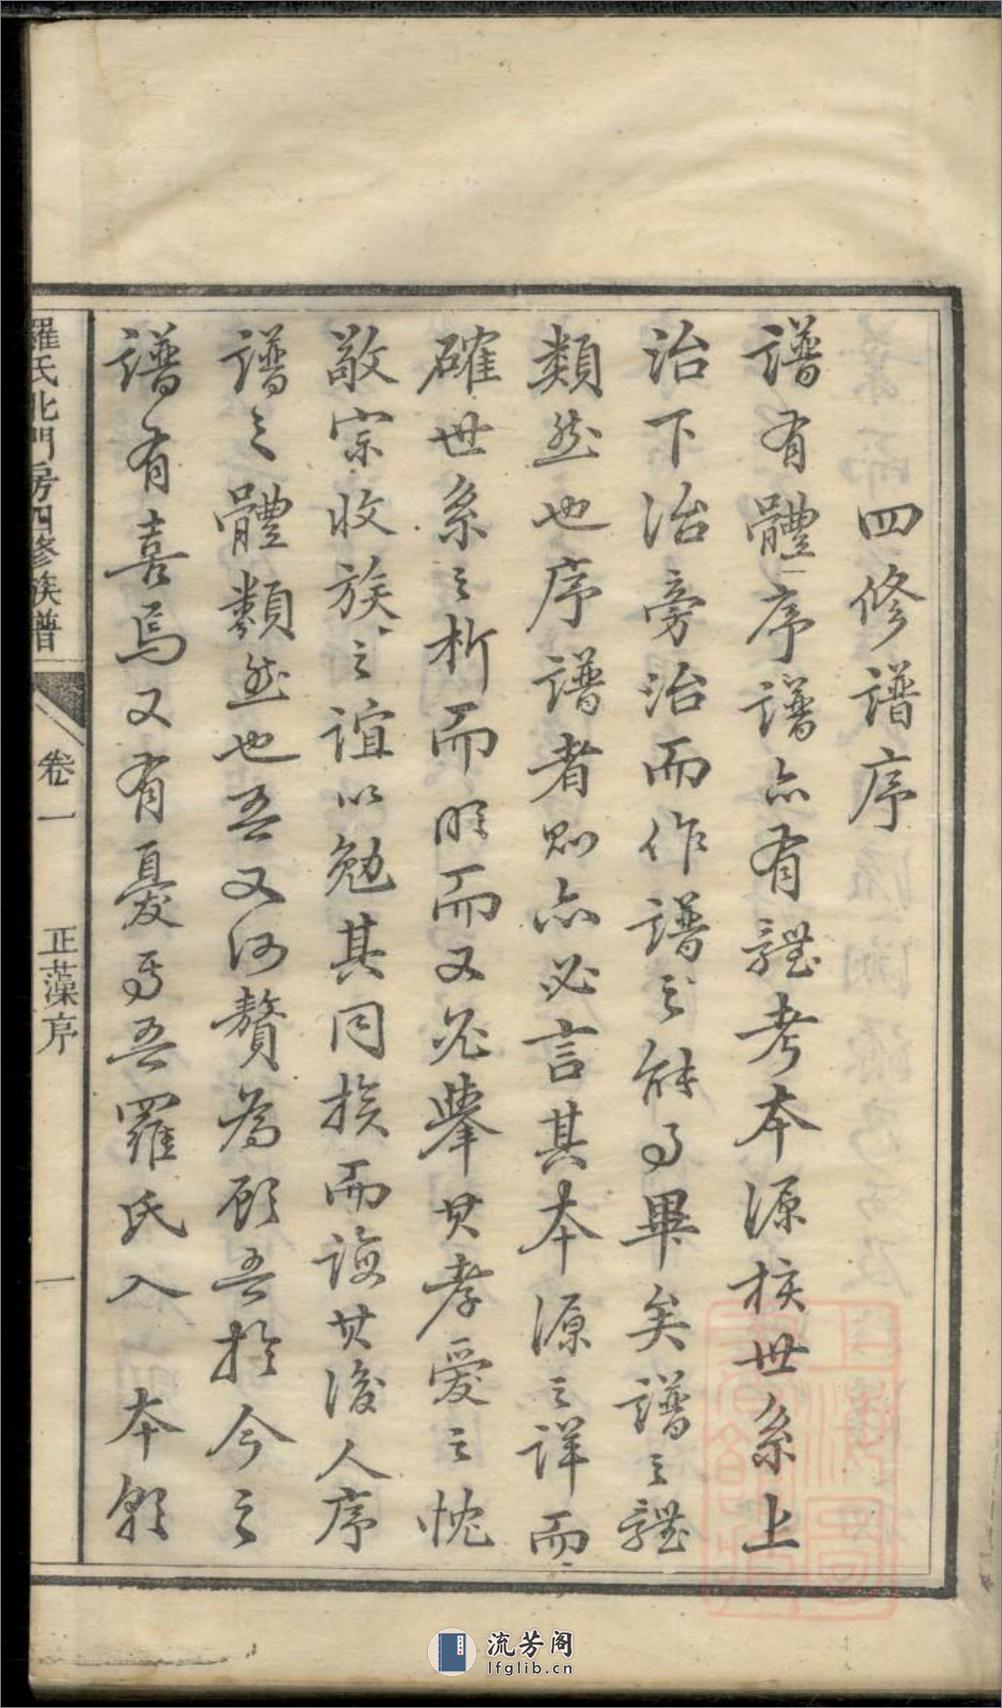 四修譜序
譜有體序譜亦有體考本源核世系上
治下治旁治而作譜之能事畢矣譜之體
類然也序譜者則亦必言其本源之詳而
確世系之析而明而又必舉其孝愛之忱
敬宗收族之誼以勉其同族而誨其後人序
譜之體類然也吾又何贅為顧吾於今之
譜有喜焉又有憂焉吾羅氏入本朝
羅氏北門房四修族譜
卷一
正藻序
一
流芳阁
lfglib.cn